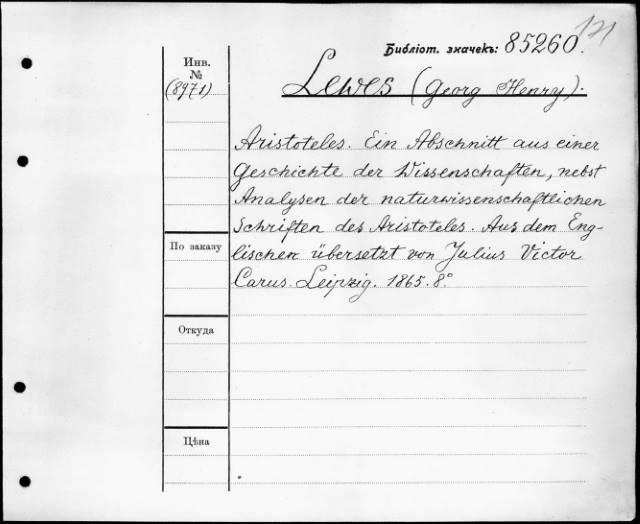 121
Библіот. значекъ: 85260.
Инв.
№
(8971)
Lewes (Georg Henry).
Aristoteles. Ein Abschnitt aus einer
Geschichte der Wissenschaften, nebst
Analysen der naturwissenschaftlichen
Schriften des Aristoteles. Aus dem Eng-
lischen übersetzt von Julius Victor
Carus. Leipzig. 1865. 8°
По заказу
Откуда
Цѣна